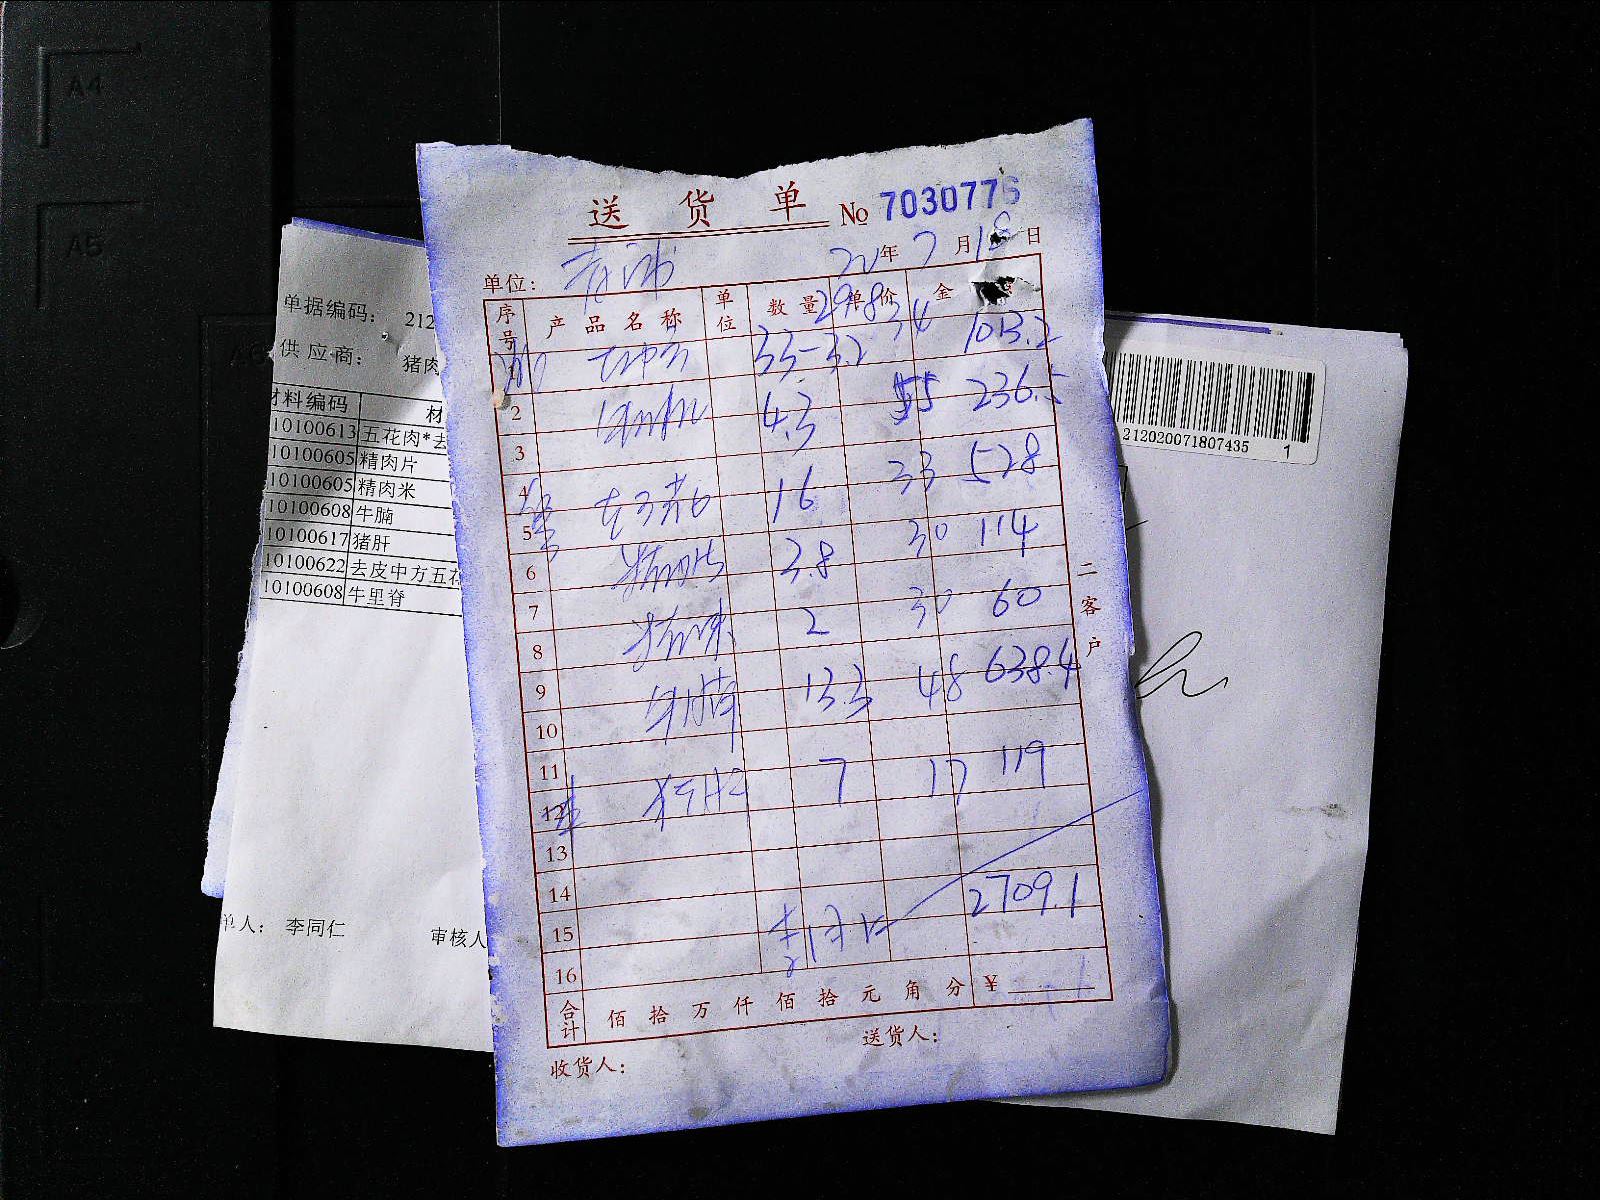 A4
A5
送货单 No 7030776
20年7月18日
单位：
序号 产品名称 单位 数量 单价 金
29.8
1 33-3.2 34 1013.2
2 4.3 55 236.5
3
4 16 33 528
5
6 精肉片 3.8 30 114
7 精肉米 2 30 60
8
9 牛腩 13.3 48 638.4
10
11 猪肝 7 17 119
12
13
14 2709.1
15
16
合计 佰拾万仟佰拾元角分 ¥
送货人：
收货人：
二客户
单据编码： 212
供应商： 猪肉
材料编码 材
10100613 五花肉*去
10100605 精肉片
10100605 精肉米
10100608 牛腩
10100617 猪肝
10100622 去皮中方五花
10100608 牛里脊
单人： 李同仁 审核人
212020071807435 1